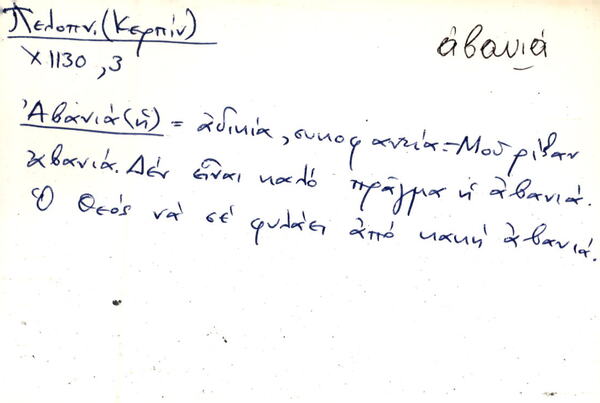 Πελοπν. (Κερπίν)
ἀβανιά
Χ 1130, 3
Ἀβανιά (ἡ) = ἀδικία, συκοφαντία: - Μοῦ ρίξαν
ἀβανιά. Δέν εἶναι καλό πρᾶγμα ἡ ἀβανιά.
Ὁ Θεός νά σέ φυλάει ἀπό κακή ἀβανιά.